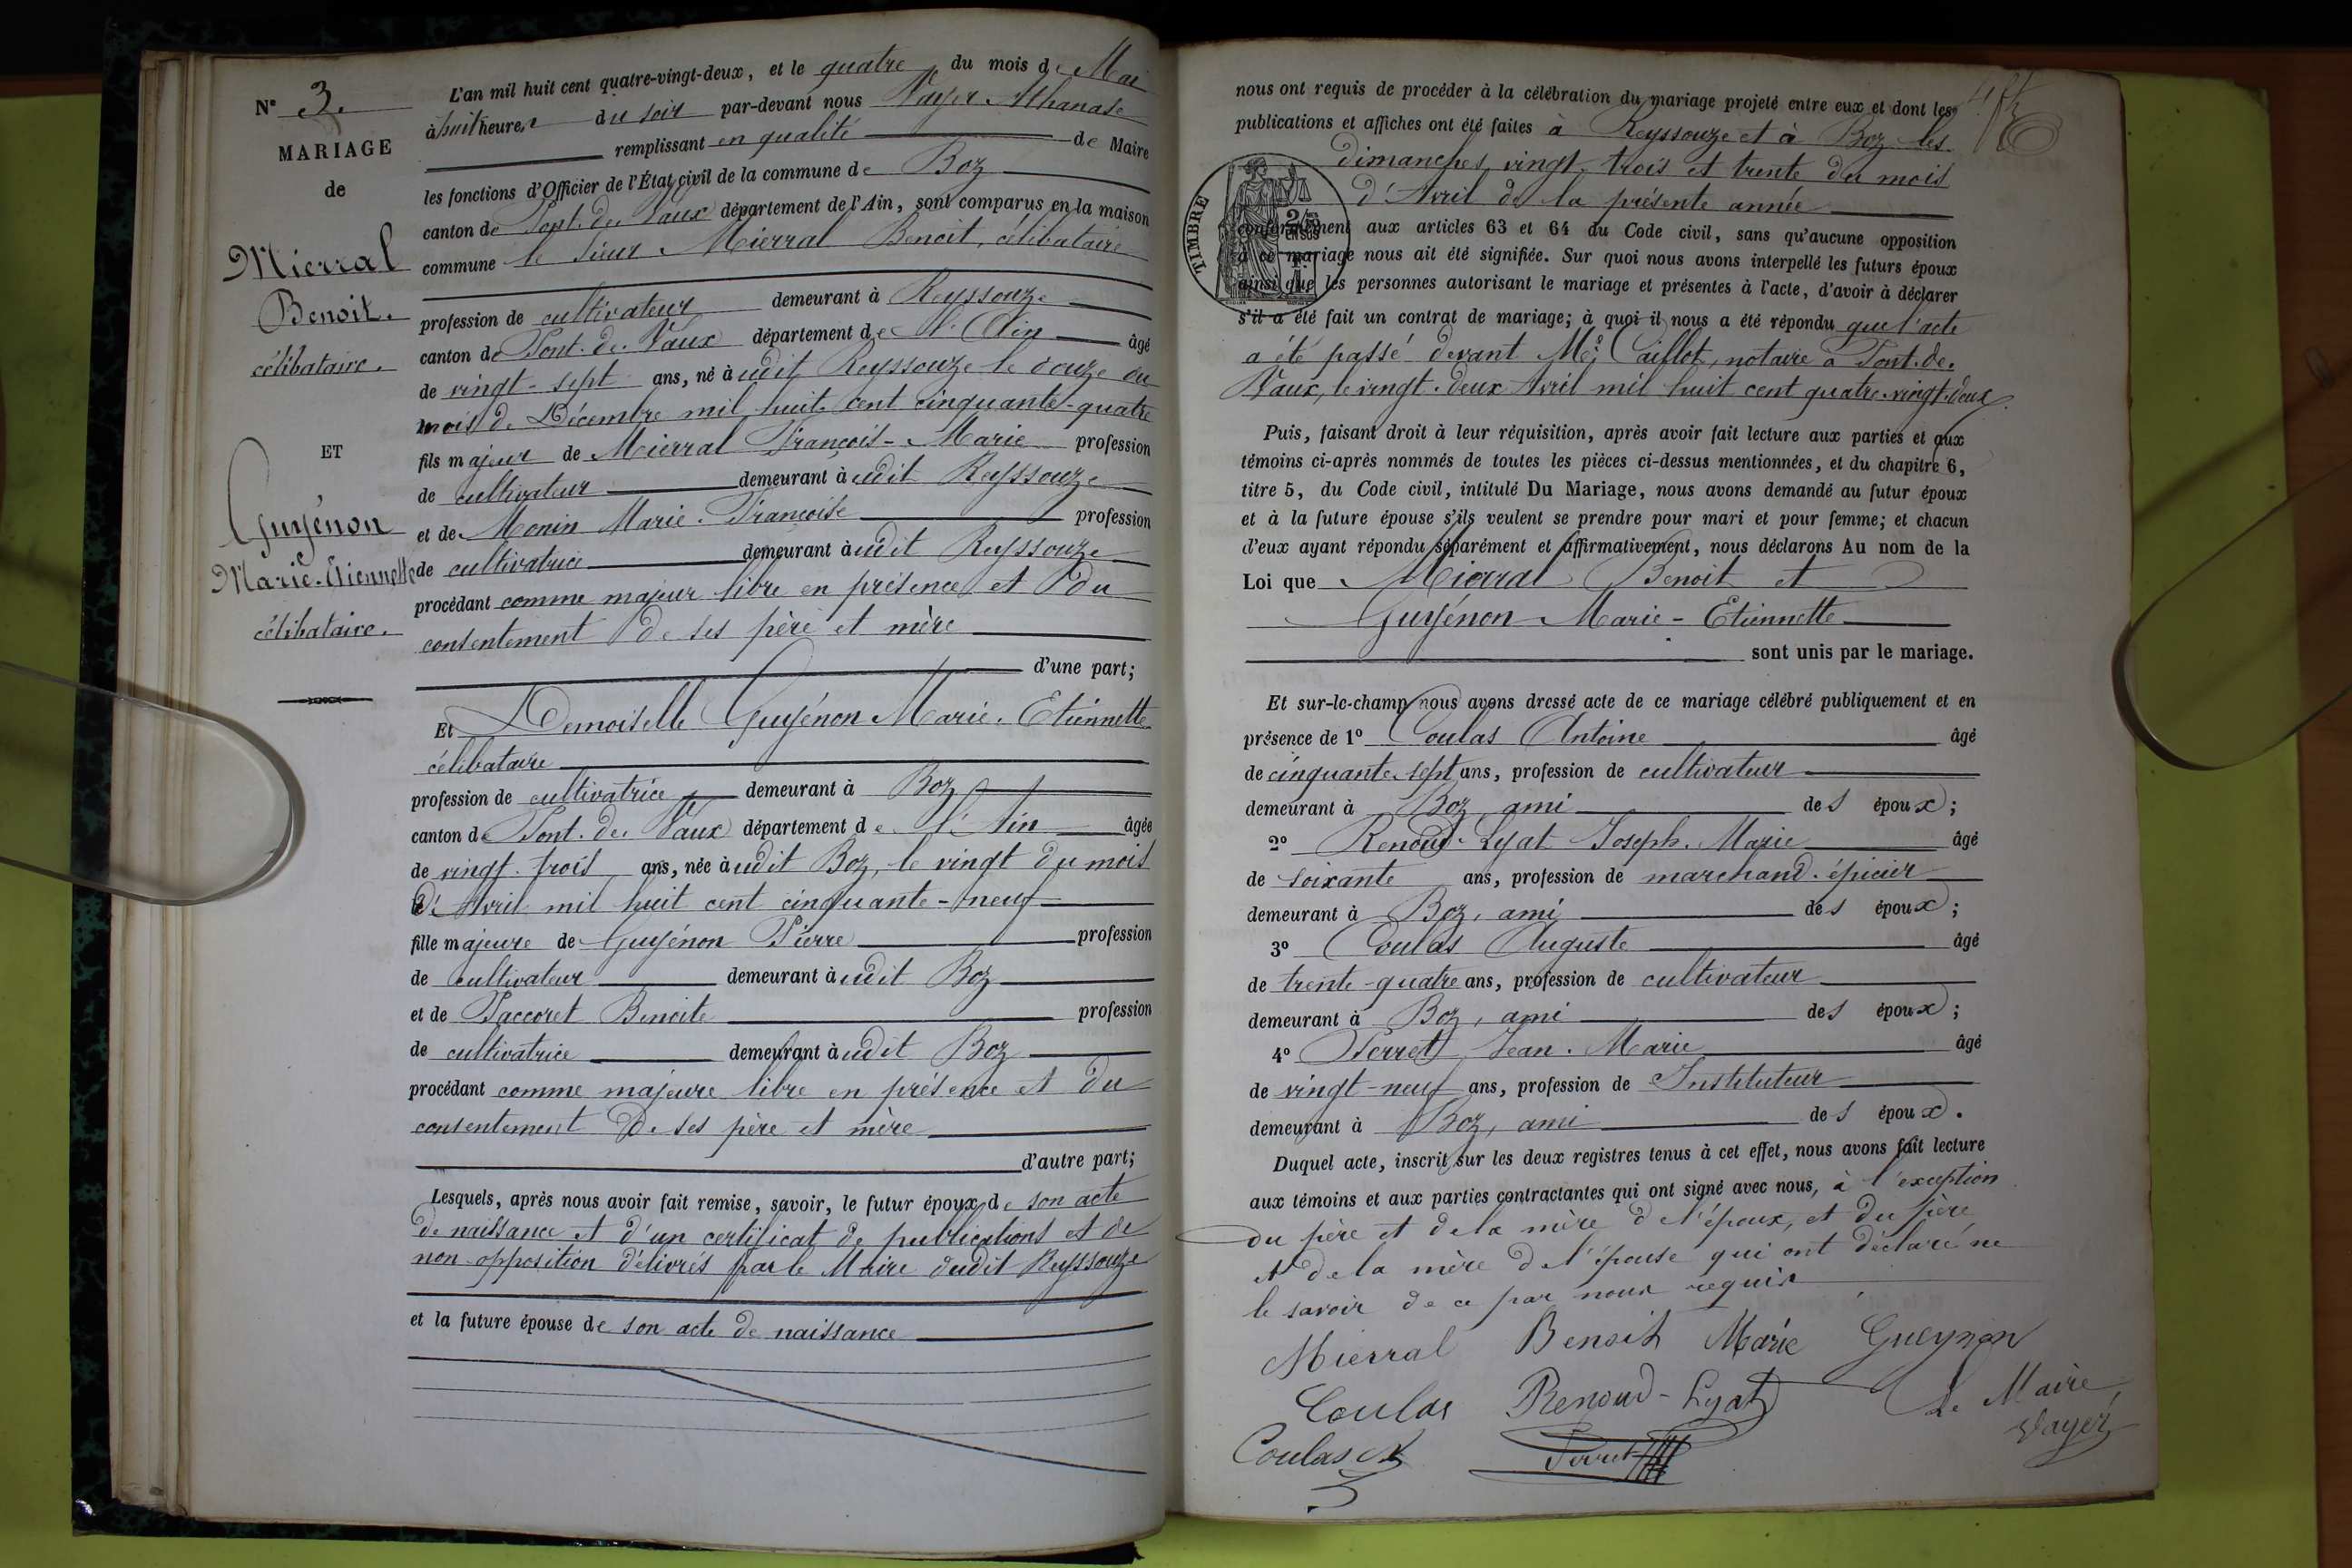 N° 3.
MARIAGE
de
Mierral
Benoit.
célibataire.
ET
Guyénon
Marie-Etiennette
célibataire.
L'an mil huit cent quatre-vingt-deux, et le quatre du mois de Mai
à huit heures du soir par-devant nous Vayer Athanase
remplissant en qualité de Maire
les fonctions d'Officier de l'État civil de la commune de Boz
canton de Pont-de-Vaux département de l'Ain, sont comparus en la maison
commune le sieur Mierral Benoit, célibataire
profession de cultivateur demeurant à Reyssouze
canton de Pont-de-Vaux département de l'Ain âgé
de vingt-sept ans, né à udit Reyssouze le douze du
mois de Décembre mil huit cent cinquante-quatre
fils majeur de Mierral François-Marie profession
de cultivateur demeurant à udit Reyssouze
et de Monin Marie-Françoise profession
de cultivatrice demeurant à udit Reyssouze
procédant comme majeur libre en présence et du
consentement de ses père et mère
d'une part;
Et Demoiselle Guyénon Marie-Etiennette
célibataire
profession de cultivatrice demeurant à Boz
canton de Pont-de-Vaux département de l'Ain âgée
de vingt-trois ans, née à udit Boz, le vingt du mois
d'Avril mil huit cent cinquante-neuf
fille majeure de Guyénon Pierre profession
de cultivateur demeurant à udit Boz
et de Paccoret Benoite profession
de cultivatrice demeurant à udit Boz
procédant comme majeure libre en présence et du
consentement de ses père et mère
d'autre part;
Lesquels, après nous avoir fait remise, savoir, le futur époux de son acte
de naissance et d'un certificat de publications et de
non-opposition délivrés par le Maire dudit Reyssouze
et la future épouse de son acte de naissance
nous ont requis de procéder à la célébration du mariage projeté entre eux et dont les
publications et affiches ont été faites à Reyssouze et à Boz les
dimanches vingt-trois et trente du mois
d'Avril de la présente année
TIMBRE
conformément aux articles 63 et 64 du Code civil, sans qu'aucune opposition
à ce mariage nous ait été signifiée. Sur quoi nous avons interpellé les futurs époux
ainsi que les personnes autorisant le mariage et présentes à l'acte, d'avoir à déclarer
s'il a été fait un contrat de mariage; à quoi il nous a été répondu que l'acte
a été passé devant Me Caillot, notaire à Pont-de-
Vaux, le vingt-deux Avril mil huit cent quatre-vingt-deux.
Puis, faisant droit à leur réquisition, après avoir fait lecture aux parties et aux
témoins ci-après nommés de toutes les pièces ci-dessus mentionnées, et du chapitre 6,
titre 5, du Code civil, intitulé Du Mariage, nous avons demandé au futur époux
et à la future épouse s'ils veulent se prendre pour mari et pour femme; et chacun
d'eux ayant répondu séparément et affirmativement, nous déclarons Au nom de la
Loi que Mierral Benoit et
Guyénon Marie-Etiennette
sont unis par le mariage.
Et sur-le-champ nous avons dressé acte de ce mariage célébré publiquement et en
présence de 1° Coulas Antoine âgé
de cinquante-sept ans, profession de cultivateur
demeurant à Boz, ami des époux;
2° Renoud-Lyat Joseph-Marie âgé
de soixante ans, profession de marchand-épicier
demeurant à Boz, ami des époux;
3° Coulas Auguste âgé
de trente-quatre ans, profession de cultivateur
demeurant à Boz, ami des époux;
4° Perret Jean-Marie âgé
de vingt-neuf ans, profession de Instituteur
demeurant à Boz, ami des époux.
Duquel acte, inscrit sur les deux registres tenus à cet effet, nous avons fait lecture
aux témoins et aux parties contractantes qui ont signé avec nous, à l'exception
du père et de la mère de l'époux, et du père
et de la mère de l'épouse qui ont déclaré ne
le savoir de ce par nous requis
Mierral Benoit Marie Gueynon
Coulas Renoud-Lyat Le Maire
Coulas A Perret Vayer